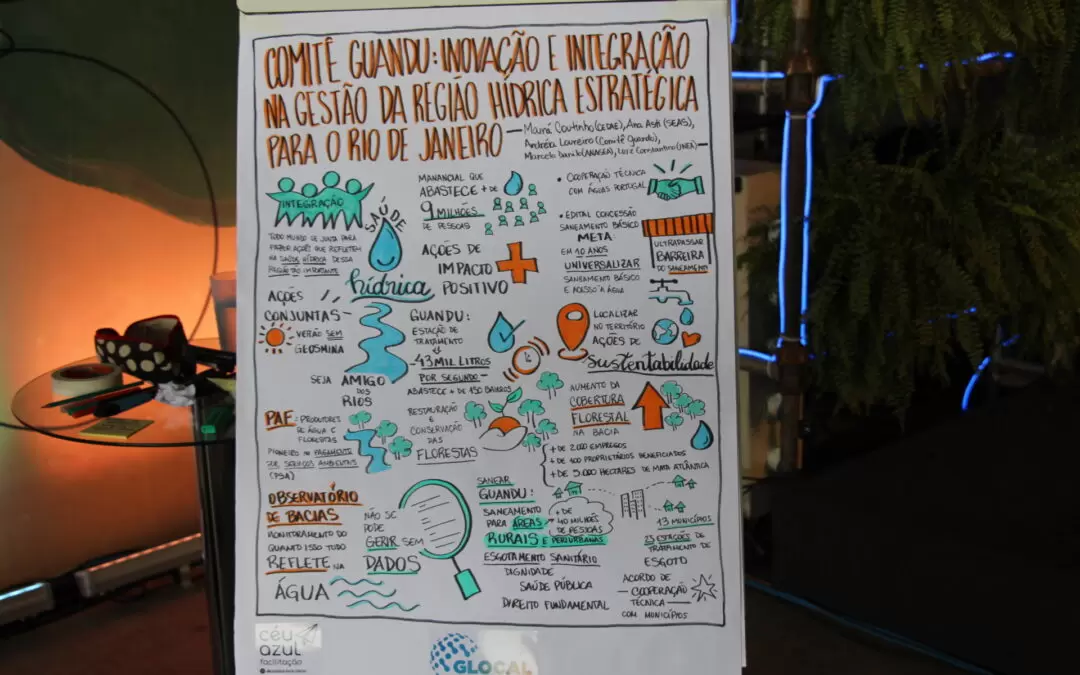 COMITÊ GUANDU: INOVAÇÃO E INTEGRAÇÃO
NA GESTÃO DA REGIÃO HÍDRICA ESTRATÉGICA
PARA O RIO DE JANEIRO
Mainá Coutinho (CEDAE), Ana Asti (SEAS),
Andréia Loureiro (Comitê Guandu),
Marcelo Danilo (ANAGEA), Constantino (INEA)
INTEGRAÇÃO
TODO MUNDO SE JUNTA PARA
AÇÕES QUE REFLETEM
NA SAÚDE HÍDRICA DESSA
REGIÃO TÃO IMPORTANTE
SAÚDE
hídrica
MANANCIAL QUE
ABASTECE + DE
9 MILHÕES
DE PESSOAS
AÇÕES DE
IMPACTO
POSITIVO
• COOPERAÇÃO TÉCNICA
COM ÁGUAS PORTUGAL
• EDITAL CONCESSÃO
SANEAMENTO BÁSICO
META
EM 10 ANOS
UNIVERSALIZAR
SANEAMENTO BÁSICO
E ACESSO À ÁGUA
ULTRAPASSAR
BARREIRA
DO SANEAMENTO
AÇÕES
CONJUNTAS
VERÃO SEM
GEOSMINA
SEJA AMIGO
DOS
RIOS
GUANDU:
ESTAÇÃO DE
TRATAMENTO
43 MIL LITROS
POR SEGUNDO
ABASTECE + DE 150 BAIRROS
LOCALIZAR
NO TERRITÓRIO
AÇÕES DE
sustentabilidade
PAF: PRODUTORES
DE ÁGUA E
FLORESTAS
PIONEIRO NO PAGAMENTO
POR SERVIÇOS AMBIENTAIS
(PSA)
RESTAURAÇÃO
E
CONSERVAÇÃO
DAS
FLORESTAS
AUMENTO DA
COBERTURA
FLORESTAL
NA BACIA
+ DE 2000 EMPREGOS
+ DE 100 PROPRIETÁRIOS BENEFICIADOS
+ DE 5.000 HECTARES DE MATA ATLÂNTICA
OBSERVATÓRIO
DE BACIAS
MONITORAMENTO DO
QUANTO ISSO TUDO
REFLETE NA
ÁGUA
NÃO SE
PODE
GERIR SEM
DADOS
SANEAR
GUANDU:
SANEAMENTO
PARA ÁREAS
RURAIS E PERIURBANAS
+ DE
40 MILHÕES
DE PESSOAS
ESGOTAMENTO SANITÁRIO
DIGNIDADE
SAÚDE PÚBLICA
DIREITO FUNDAMENTAL
13 MUNICÍPIOS
23 ESTAÇÕES DE
TRATAMENTO DE
ESGOTO
ACORDO DE
COOPERAÇÃO
TÉCNICA
COM MUNICÍPIOS
céu
azul
facilitação
GLOCAL